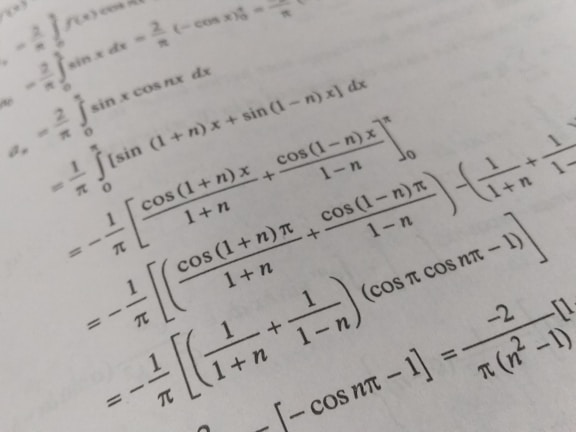 = 2/π ∫₀ f(x) cos
= 2/π ∫₀ sin x dx = 2/π (− cos x)₀ =
aₙ = 2/π ∫₀^π sin x cos nx dx
= 1/π ∫₀^π [sin (1 + n) x + sin (1 − n) x] dx
= − 1/π [cos (1 + n) x / 1 + n + cos (1 − n) x / 1 − n]₀^π
= − 1/π [(cos (1 + n) π / 1 + n + cos (1 − n) π / 1 − n) − (1 / 1 + n + 1 / 1 −
= − 1/π [(1 / 1 + n + 1 / 1 − n) (cos π cos nπ − 1)]
[− cos nπ − 1] = −2 / π (n² − 1) [1